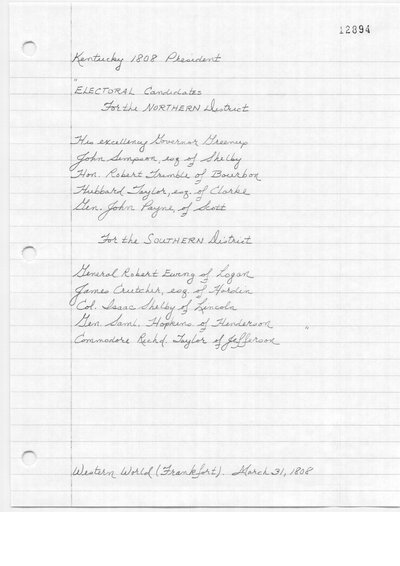 12894
Kentucky 1808 President
"
ELECTORAL Candidates
For the NORTHERN District
His excellency Governor Greenup
John Simpson, esq of Shelby
Hon. Robert Trimble of Bourbon
Hubbard Taylor, esq. of Clarke
Gen. John Payne, of Scott
For the SOUTHERN District
General Robert Ewing of Logan
James Crutcher, esq of Hardin
Col. Isaac Shelby of Lincoln
Gen. Saml. Hopkins of Henderson
Commodore Richd. Taylor of Jefferson "
Western World (Frankfort). March 31, 1808